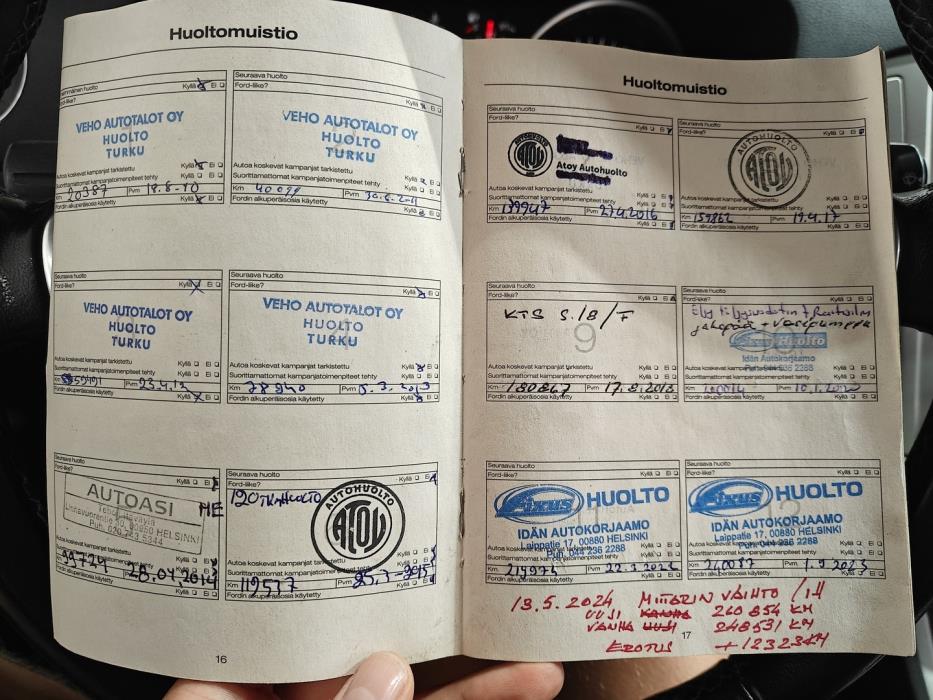 Huoltomuistio
Ford-liike?
Kyllä Ei
VEHO AUTOTALOT OY
HUOLTO
TURKU
Autoa koskevat kampanjat tarkistettu
Kyllä Ei
Suorittamattomat kampanjatoimenpiteet tehty
Kyllä Ei
Km 20387 Pvm 18.8-10
Fordin alkuperäisosia käytetty
Seuraava huolto
Ford-liike?
Kyllä Ei
VEHO AUTOTALOT OY
HUOLTO
TURKU
Autoa koskevat kampanjat tarkistettu
Kyllä Ei
Suorittamattomat kampanjatoimenpiteet tehty
Kyllä Ei
Km Pvm
Fordin alkuperäisosia käytetty
Kyllä Ei
Seuraava huolto
Ford-liike?
Kyllä Ei
VEHO AUTOTALOT OY
HUOLTO
TURKU
Autoa koskevat kampanjat tarkistettu
Kyllä Ei
Suorittamattomat kampanjatoimenpiteet tehty
Kyllä Ei
Km Pvm 23.4.12
Fordin alkuperäisosia käytetty
Kyllä Ei
Seuraava huolto
Ford-liike?
Kyllä Ei
VEHO AUTOTALOT OY
HUOLTO
TURKU
Autoa koskevat kampanjat tarkistettu
Kyllä Ei
Suorittamattomat kampanjatoimenpiteet tehty
Kyllä Ei
Km 78940 Pvm 5.3.2013
Fordin alkuperäisosia käytetty
Kyllä Ei
Seuraava huolto
Ford-liike?
AUTOASI
00850 HELSINKI
Puh.
Km 99724 28.04.2014
Fordin alkuperäisosia käytetty
Kyllä Ei
Seuraava huolto
Ford-liike?
Kyllä Ei
120 TKM HUOLTO
AUTOHUOLTO
ATOY
Autoa koskevat kampanjat tarkistettu
Kyllä Ei
Suorittamattomat kampanjatoimenpiteet tehty
Kyllä Ei
Km 119577 Pvm
Fordin alkuperäisosia käytetty
Kyllä Ei
16
Huoltomuistio
Seuraava huolto
Ford-liike?
Kyllä Ei
ATOY
Atoy Autohuolto
Autoa koskevat kampanjat tarkistettu
Kyllä Ei
Suorittamattomat kampanjatoimenpiteet tehty
Kyllä Ei
Km 139947 Pvm 27.4.2016
Fordin alkuperäisosia käytetty
Kyllä Ei
Seuraava huolto
Ford-liike?
Kyllä Ei
AUTOHUOLTO
ATOY
Autoa koskevat kampanjat tarkistettu
Kyllä Ei
Suorittamattomat kampanjatoimenpiteet tehty
Kyllä Ei
Km 159862 Pvm 19.4.17
Fordin alkuperäisosia käytetty
Kyllä Ei
Seuraava huolto
Ford-liike?
Kyllä Ei
KTS S./B/F
Autoa koskevat kampanjat tarkistettu
Kyllä Ei
Suorittamattomat kampanjatoimenpiteet tehty
Kyllä Ei
Km 180867 Pvm 17.9.2018
Fordin alkuperäisosia käytetty
Kyllä Ei
Seuraava huolto
Ford-liike?
jakopää + vesipumppu
Fixus Huolto
Idän Autokorjaamo
Autoa koskevat kampanjat tarkistettu
Kyllä Ei
Suorittamattomat kampanjatoimenpiteet tehty
Kyllä Ei
Km Pvm
Fordin alkuperäisosia käytetty
Kyllä Ei
Seuraava huolto
Ford-liike?
Kyllä Ei
Fixus HUOLTO
IDÄN AUTOKORJAAMO
Laippatie 17, 00880 HELSINKI
Puh. 044 236 2288
Km Pvm 22.3.2022
Fordin alkuperäisosia käytetty
Kyllä Ei
Seuraava huolto
Ford-liike?
Kyllä Ei
Fixus HUOLTO
IDÄN AUTOKORJAAMO
Laippatie 17, 00880 HELSINKI
Puh. 044 236 2288
Km 240087 Pvm 1.9.2023
Fordin alkuperäisosia käytetty
Kyllä Ei
13.5.2024 MITTARIN VAIHTO
UUSI VANHA 260854 KM
VANHA UUSI 248531 KM
EROTUS +12323KM
17